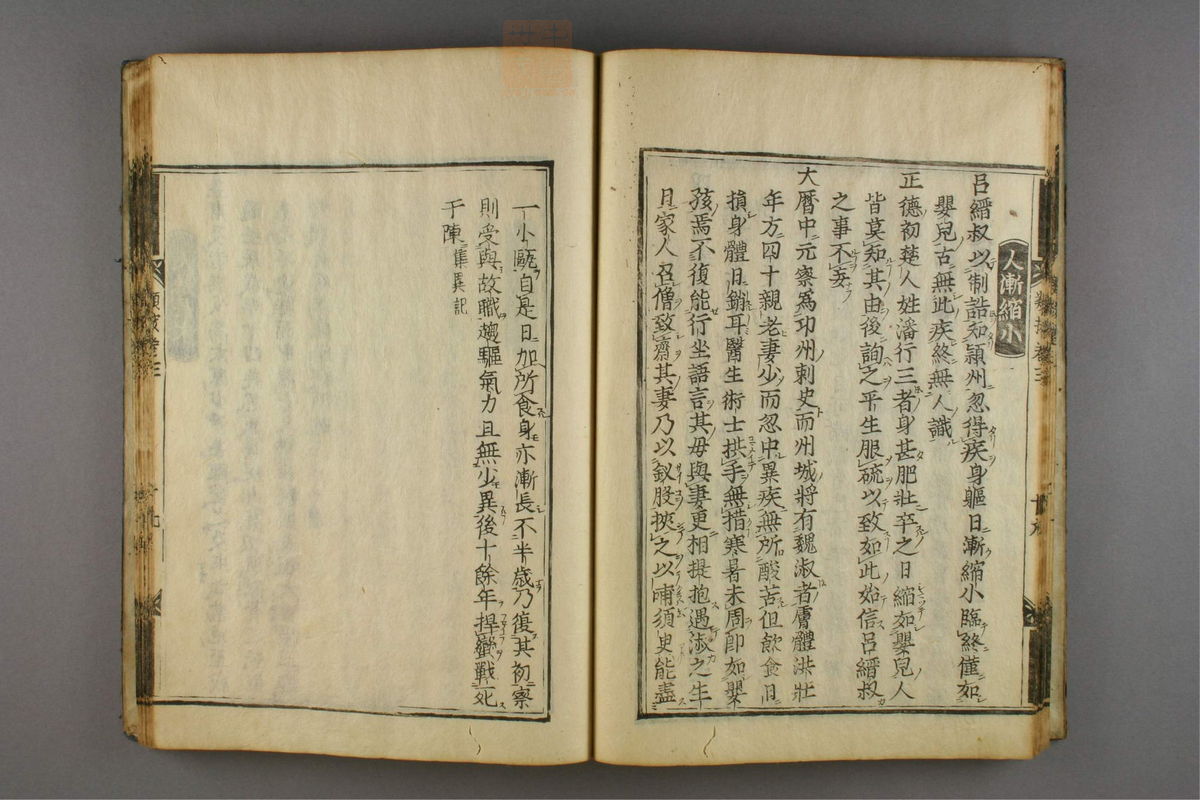 人漸縮小
呂縉叔以制誥知頴州忽得疾身軀日漸縮小臨終僅如
嬰兒古無此疾終無人識
正德初楚人姓潘行三者身甚肥壯卒之日縮如嬰兒人
皆莫知其由後詢之平生服硫以致如此始信呂縉叔
之事不妄
大曆中元察爲卭州刺史而州城將有魏淑者膚體洪壯
年方四十親老妻少而忽中異疾無所酸苦但飲食日
損身體日銷耳醫生術士拱手無措寒暑未周卽如嬰
孩焉不復能行坐語言其母與妻更相提抱遇淑之生
日家人召僧致齋其妻乃以釵股挾之以哺須臾能盡
一小甌自是日加所食身亦漸長不半歲乃復其初察
則受與故職趨驅氣力且無少異後十餘年捍蠻戰死
于陳集異記